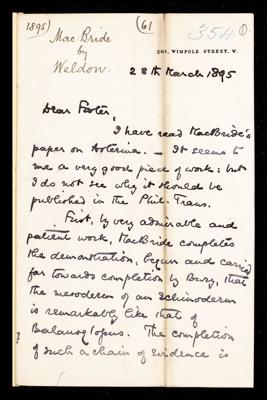 1895)
(61
354
①.
MacBride
by
Weldon.
30A, WIMPOLE STREET, W.
28th March 1895
Dear Foster,
I have read MacBride's
paper on Asterina. — It seems to
me a very good piece of work: but
I do not see why it should be
published in the Phil. Trans.
First, by very admirable and
patient work, MacBride completes
the demonstration, begun and carried
far towards completion by Bury, that
the mesoderm of an Echinoderm
is remarkably like that of
Balanoglossus. The completion
of such a chain of evidence is